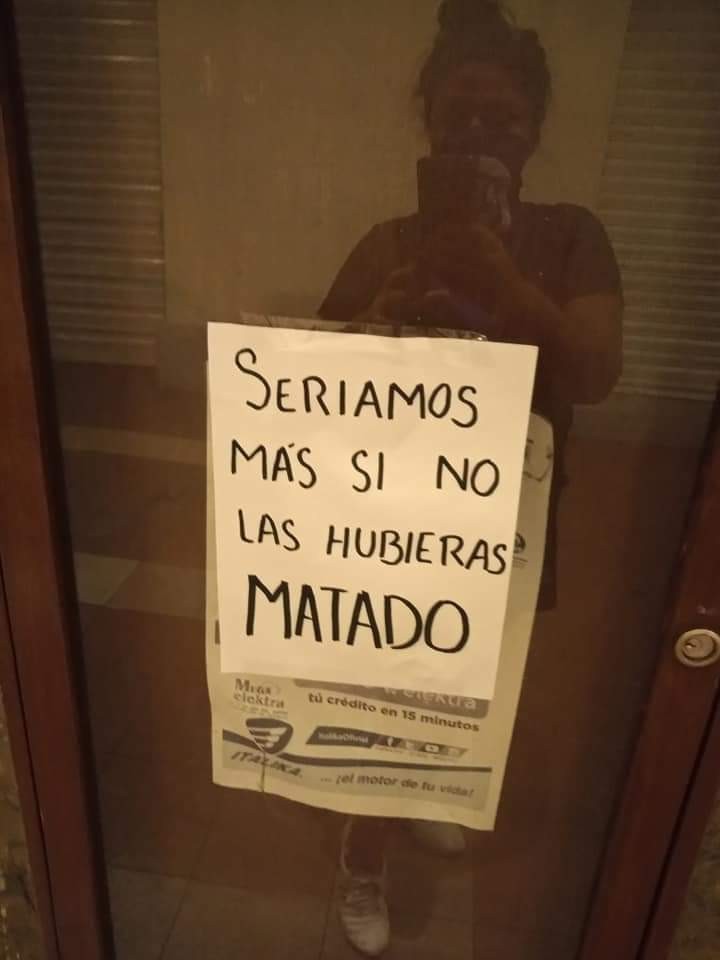 SERIAMOS
MÁS SI NO
LAS HUBIERAS
MATADO
elektra
elektra
tú crédito en 15 minutos
ITALIKA
... ¡el motor de tu vida!